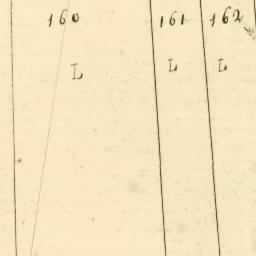 160 161 162
L L L